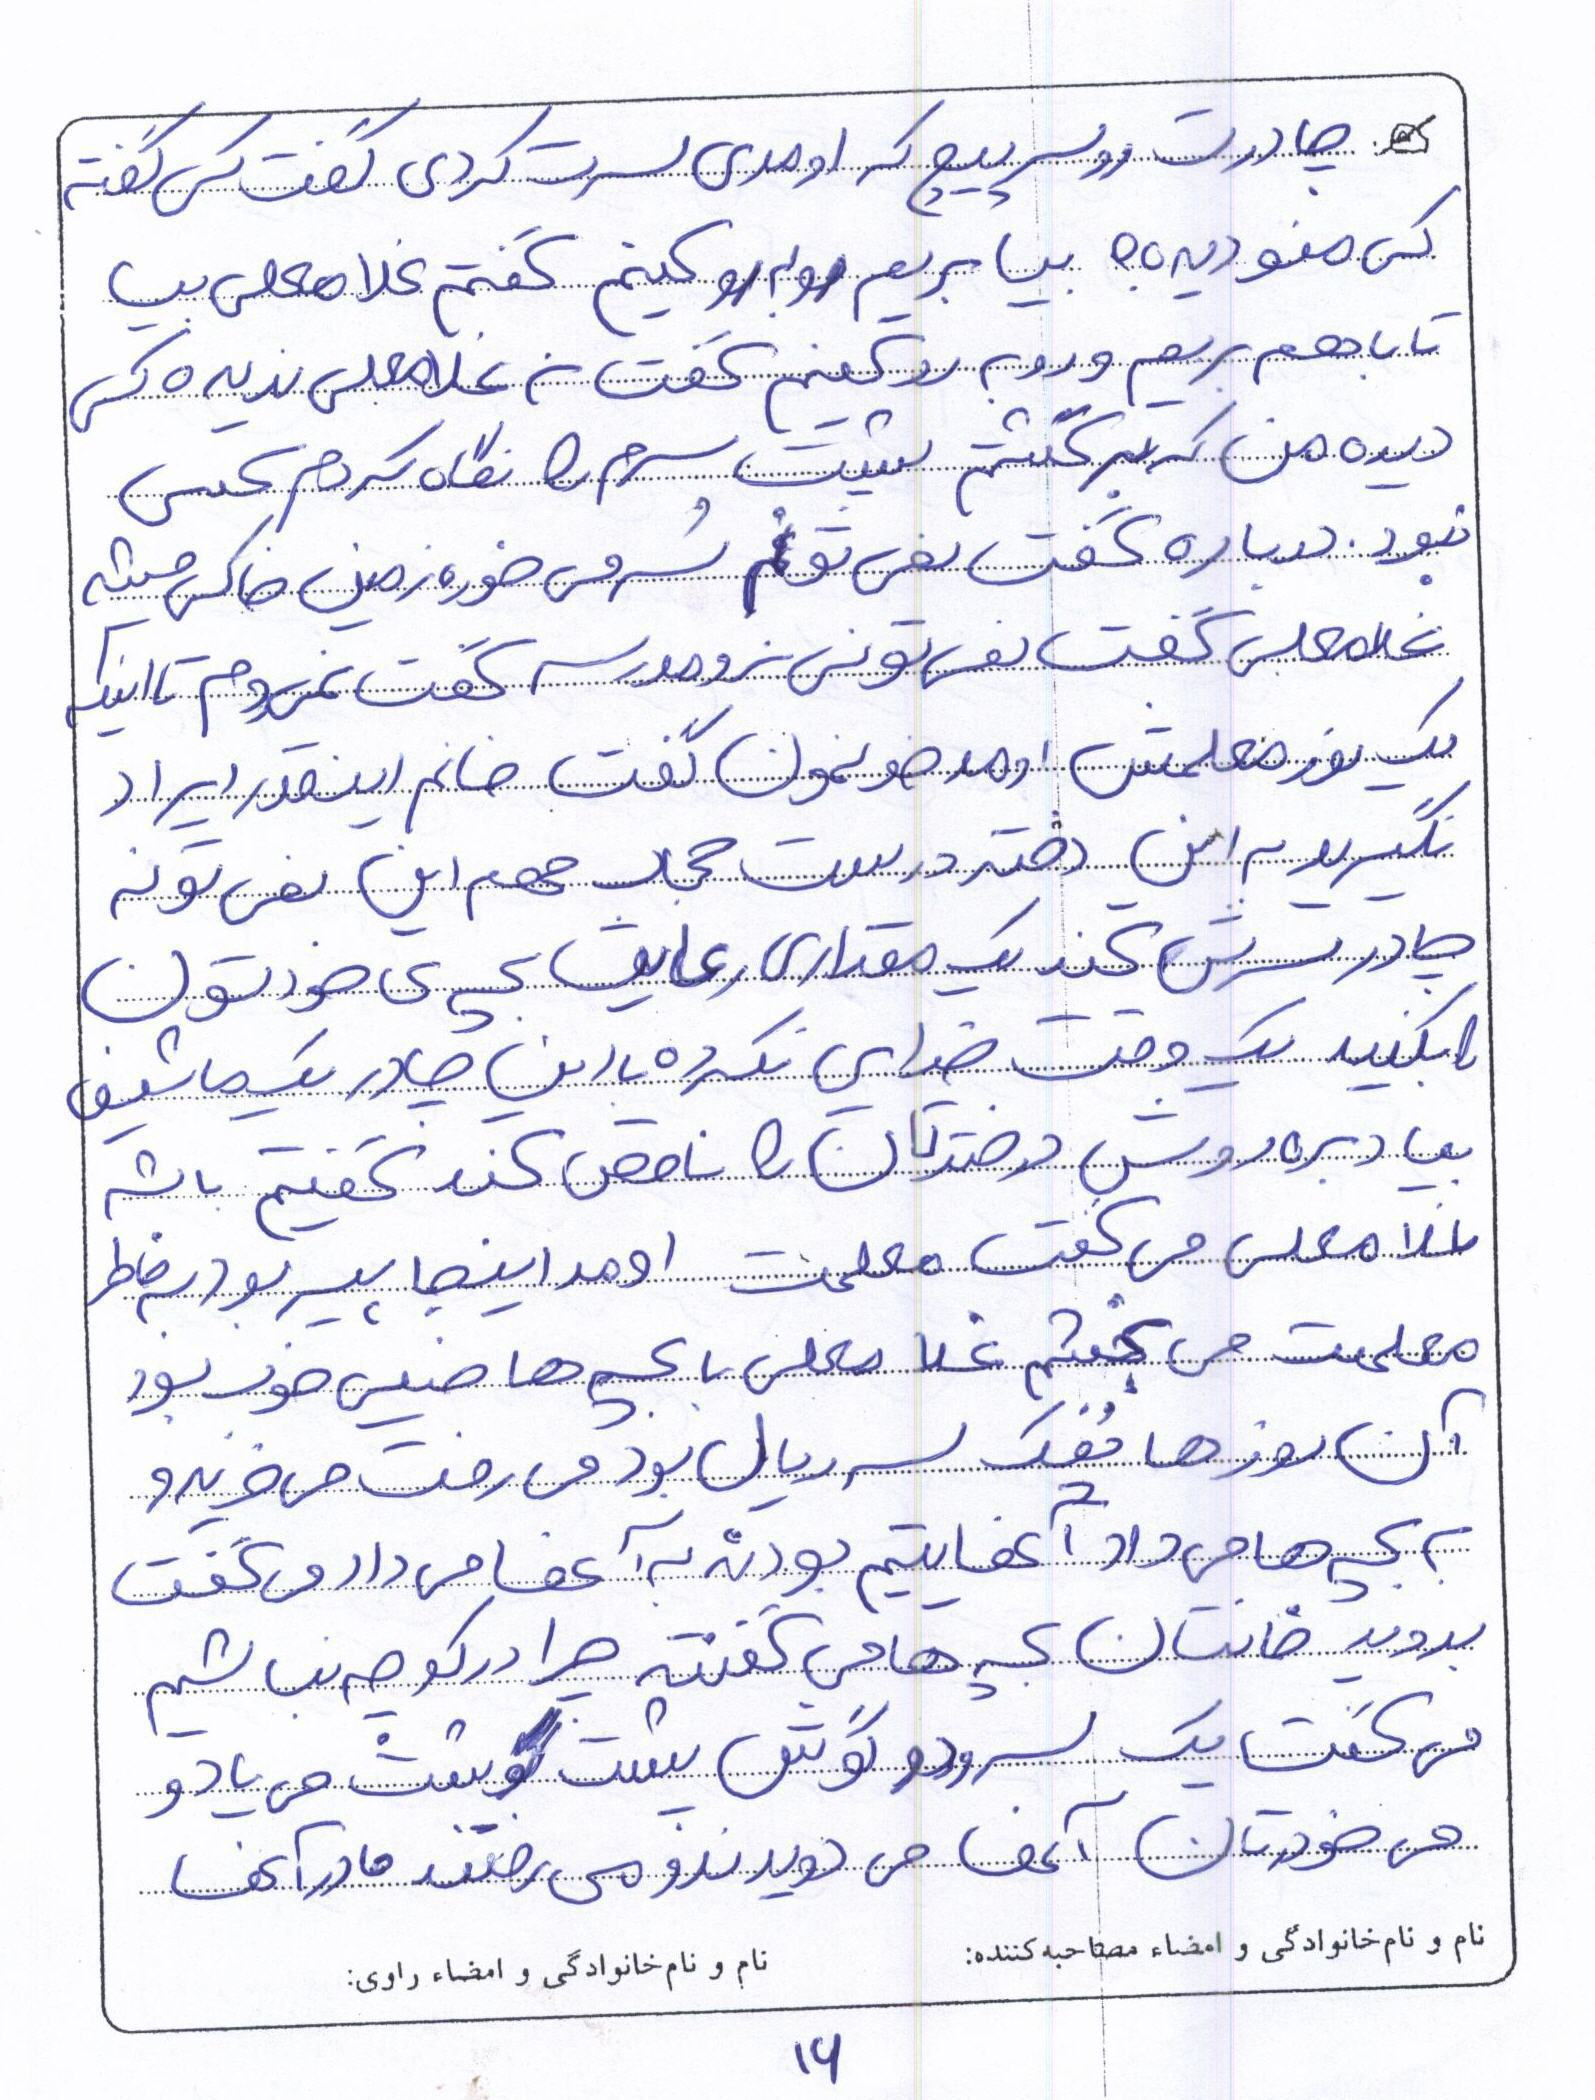 چادرت رو سر پیچ که اومدی سرت کردی گفت کی گفته
کی منو دیده؟ بیا بریم روبرو کنیم گفتم غلامعلی بیا
تا باهم بریم و روبه رو کنیم گفت نه غلامعلی ندیده کی
دیده من که برگشتم پشت سرم را نگاه کردم کسی
نبود. دوباره گفت نمی تونم سُر می خوره زمین خاکی میشه
غلامعلی گفت نمی تونی نرو مدرسه گفت نمی روم تا اینکه
یک روز معلمش اومد خونمون گفت خانم اینقدر ایراد
نگیرید به این دختر درست حجاب مهم این نمی تونه
چادر سرش کند یک مقداری رعایت بچه ی خودتون
را بکنید یک وقت خدای نکرده با این چادر یک ماشین
بیاد بره روش دخترتان را ناقص کند گفتیم باشه
غلامعلی می گفت معلمت اومد اینجا پسر بود به خاطر
معلمت می بخشم غلامعلی با بچه ها خیلی خوب بود
آن روزها پفک سه ریال بود می رفت می خرید و
به بچه ها می داد آنها یتیم بودند به آنها می داد می گفت
بروید خانتان بچه ها می گفتند چرا در کوچه نباشیم
می گفت یک سر و دو گوش پشت گوشت می یاد و
می خوردتان آنها می دویدند و می رفتند مادر آنها
نام و نام خانوادگی و امضاء مصاحبه کننده: نام و نام خانوادگی و امضاء راوی:
۱۶